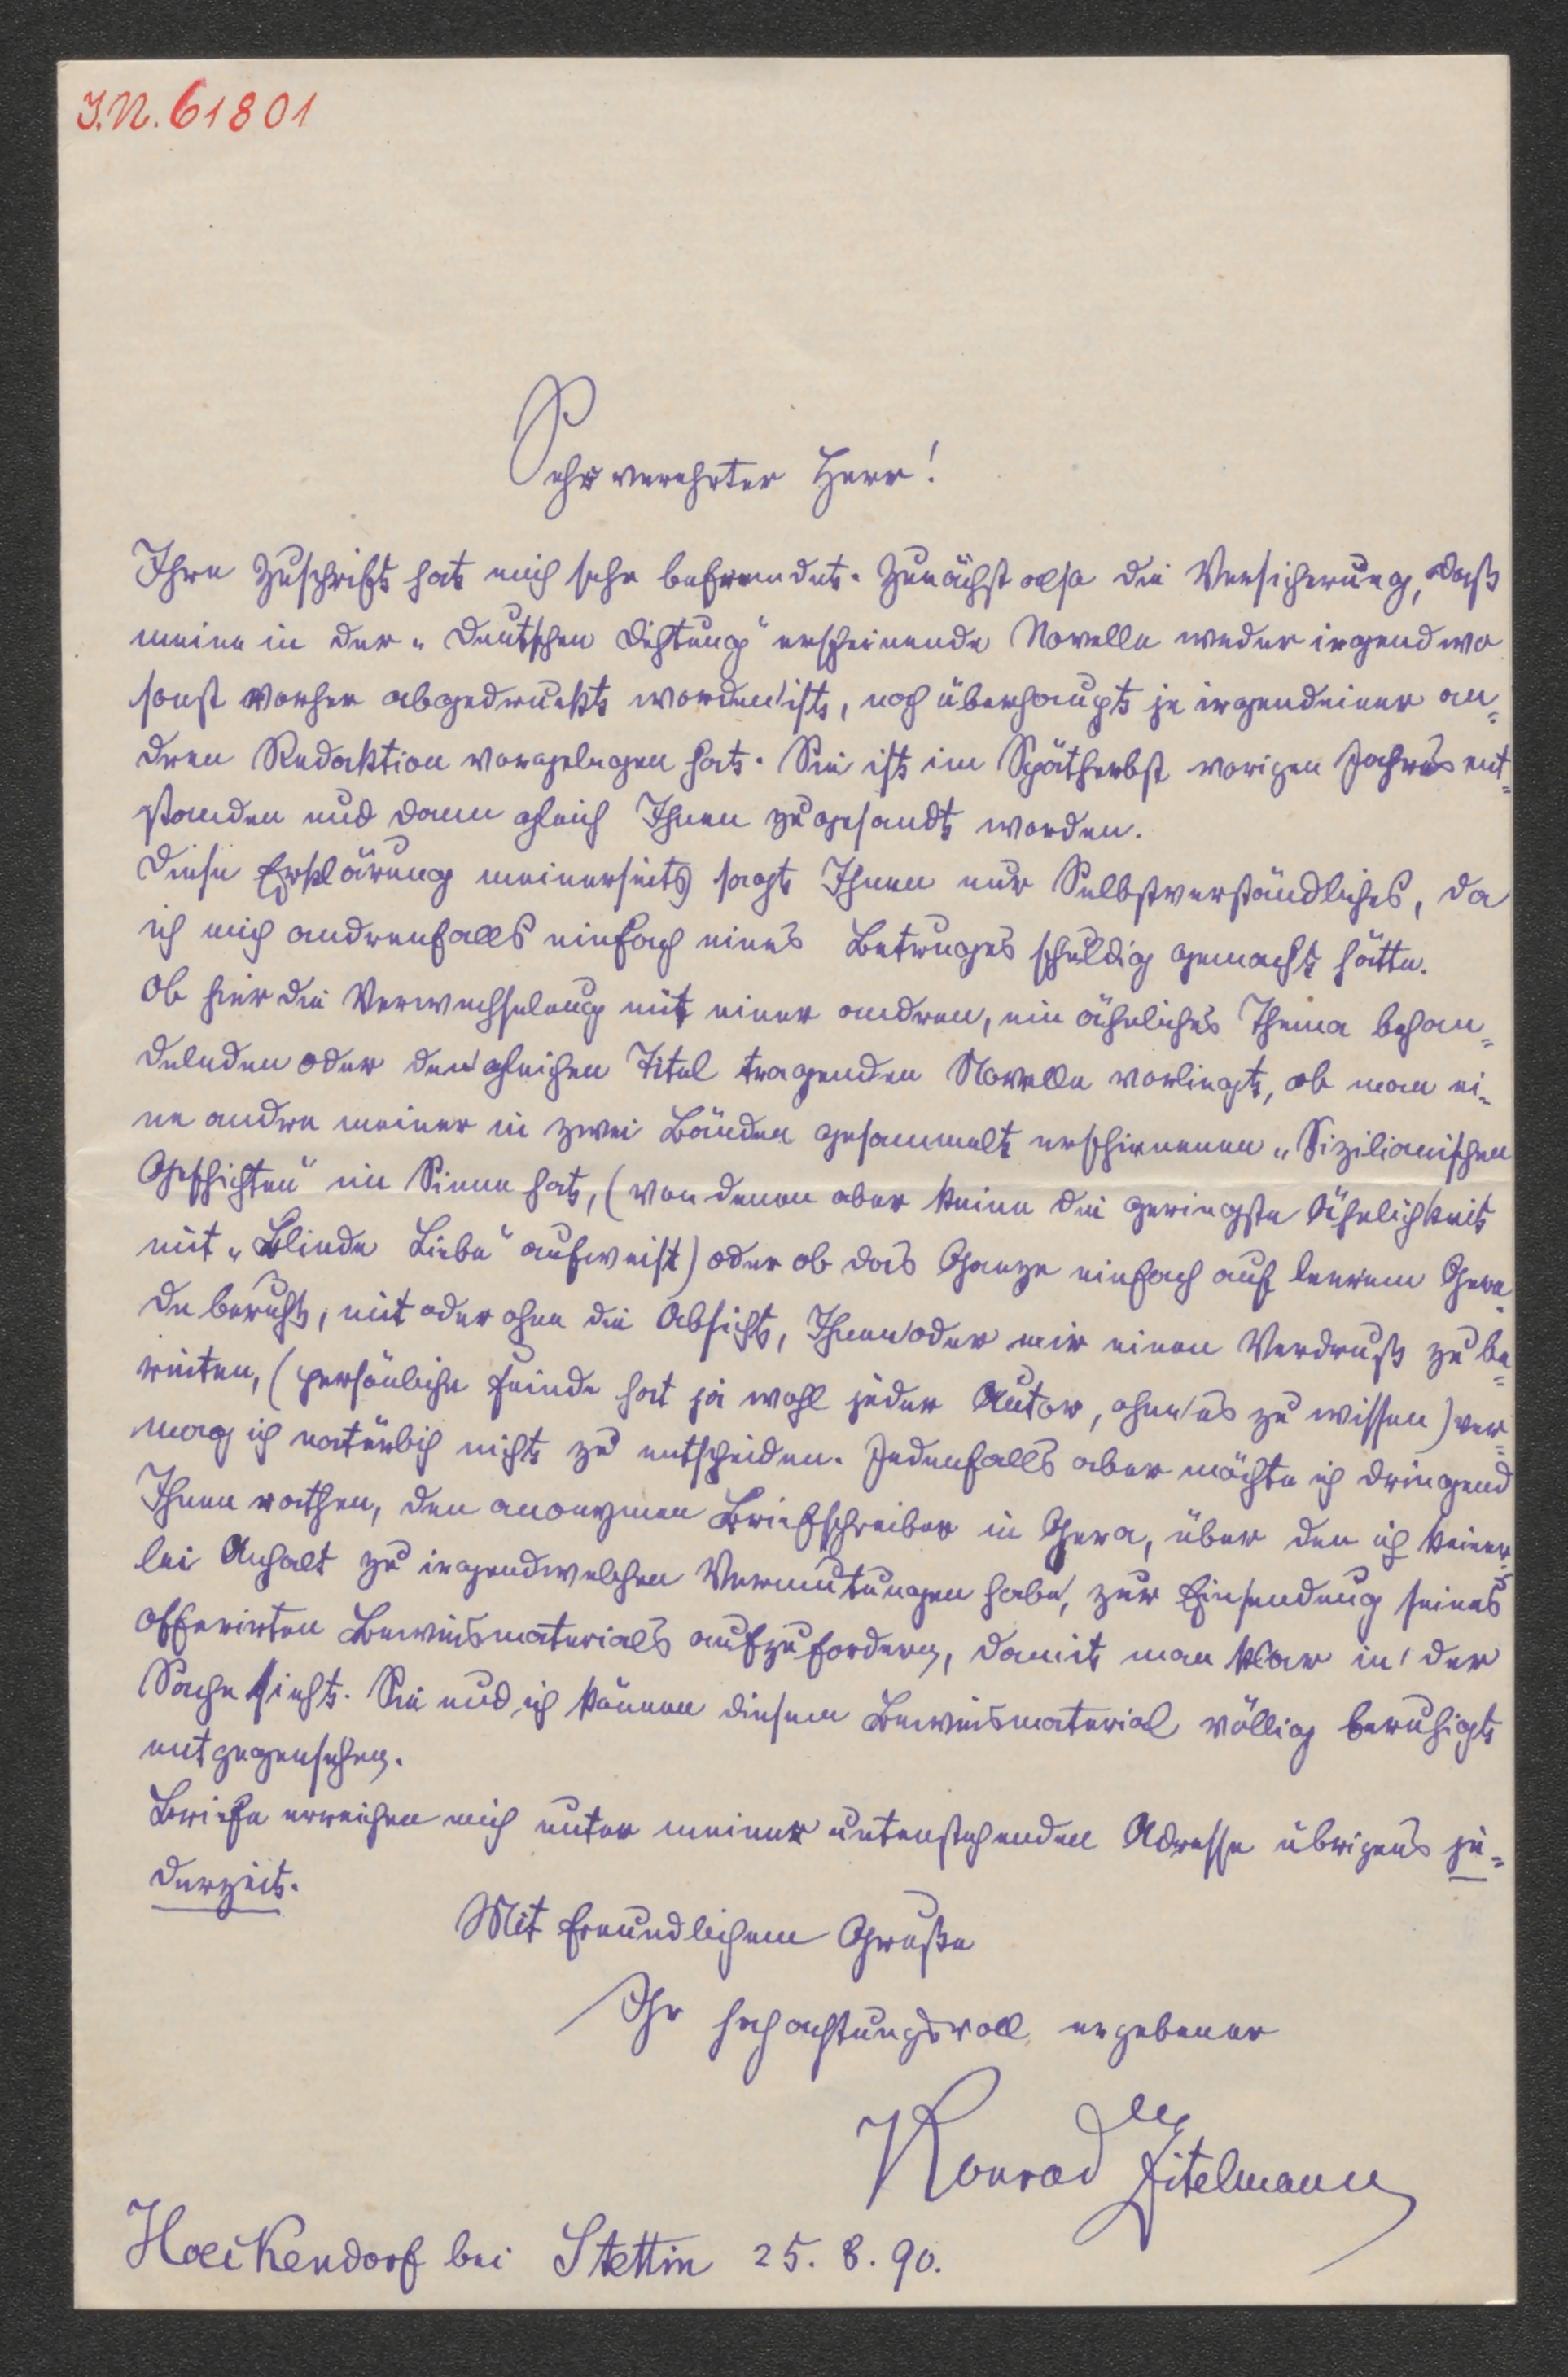 J.N. 61801
Sehr verehrter Herr!
Ihre Zuschrift hat mich sehr befremdet. Zunächst also die Versicherung, daß
meine in der „Deutschen Dichtung" erscheinende Novelle weder irgendwo
sonst vorher abgedruckt worden ist, noch überhaupt je irgendeiner an-
dren Redaktion vorgelegen hat. Sie ist im Spätherbst vorigen Jahres ent-
standen und dann gleich Ihnen zugesandt worden.
Diese Erklärung meinerseits sagt Ihnen nur Selbstverständliches, da
ich mich andrenfalls einfach eines Betruges schuldig gemacht hätte.
Ob hier die Verwechselung mit einer andren, ein ähnliches Thema behan-
delnden oder den gleichen Titel tragenden Novelle vorliegt, ob man ei-
ne andre meiner in zwei Bänden gesammelt erschienenen „Sizilianischen
Geschichten" im Sinne hat, (von denen aber keine die geringste Ähnlichkeit
mit „Blinde Liebe" aufweist) oder ob das Ganze einfach auf leerem Gere-
de beruht, mit oder ohne die Absicht, Ihnen oder mir einen Verdruß zu be-
reiten, (persönliche Feinde hat ja wohl jeder Autor, ohne es zu wissen) ver-
mag ich natürlich nicht zu entscheiden. Jedenfalls aber möchte ich dringend
Ihnen rathen, den anonymen Briefschreiber in Gera, über den ich keiner-
lei Anhalt zu irgendwelchen Vermutungen habe, zur Einsendung seines
offerirten Beweismaterials aufzufordern, damit man klar in der
Sache sieht. Sie und ich können diesem Beweismaterial völlig beruhigt
entgegensehen.
Briefe erreichen mich unter meiner untenstehenden Adresse übrigens je-
derzeit.
Mit freundlichem Gruße
Ihr hochachtungsvoll ergebener
Konrad Zitelmann
Hoeckendorf bei Stettin 25. 8. 90.